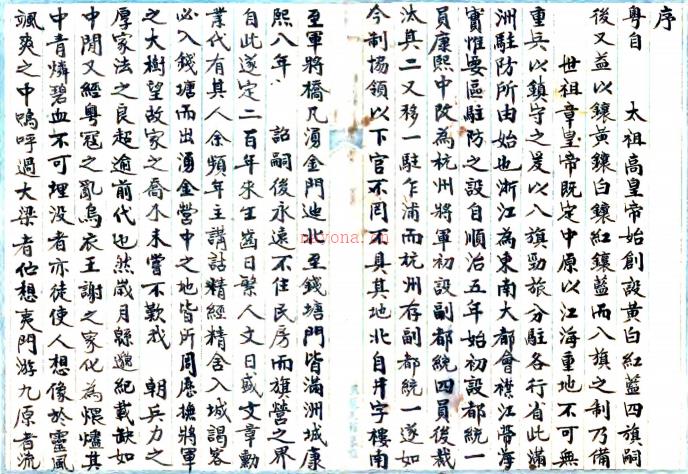 序
粵自　太祖高皇帝始創設黃白紅藍四旗嗣
後又益以鑲黃鑲白鑲紅鑲藍而八旗之制乃備
世祖章皇帝既定中原以江海重地不可無
重兵以鎮守之爰以八旗勁旅分駐各行省此滿
洲駐防所由始也浙江為東南大都會襟江帶海
實惟要區駐防之設自順治五年始初設都統一
員康熙中改為杭州將軍初設副都統四員後裁
汰其二又移一駐乍浦而杭州存副都統一遂如
今制協領以下官不同不具其地北自井字樓南
至軍將橋凡湧金門迤北至錢塘門皆滿洲城康
熙八年　詔嗣後永遠不住民房而旗營之界
自此遂定二百年來生齒日繁人文日盛文章勳
業代有其人余頻年主講詁精經精舍入城謁客
必入錢塘而出湧金營中之地皆所周歷撫將軍
之大樹望故家之喬木未嘗不歎我　朝兵力之
厚家法之良超逾前代也然歲月緜邈紀載缺如
中閒又經粵寇之亂烏衣王謝之家化為煨燼其
中青燐碧血不可埋没者亦徒使人想像於靈風
颯爽之中嗚呼過大梁者佇想夷門游九原者流
nayona.cn